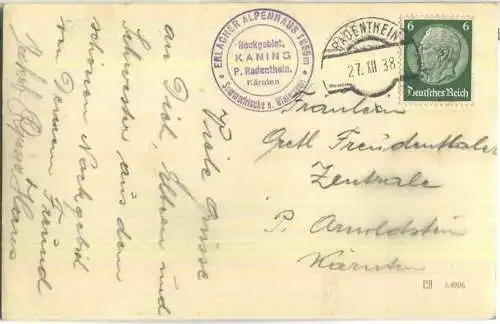 ERLACHER ALPENHAUS 1636m
Nockgebiet.
KANING
P. Radenthein.
Kärnten
RADENTHEIN
27. XII 38
6 6
Deutsches Reich
Viele Grüsse
an Dich, Eltern und
Schwester aus dem
schönen Nockgebiet
von Deinem Freund
Hans
Fräulein
Gretl Freudenthaler
Zentrale
P. Arnoldstein
Kärnten